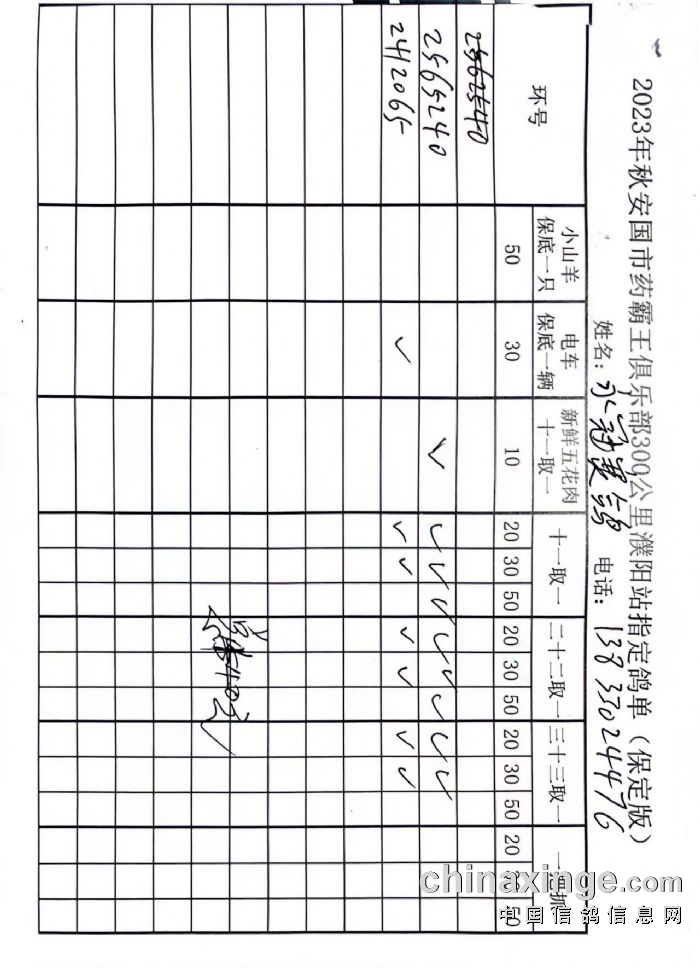 2023年秋安国市药霸王俱乐部300公里濮阳站指定鸽单（保定版）
姓名： 电话：13833024476
环号 小山羊保底一只 电车保底一辆 新鲜五花肉十一取一 十一取一 二十二取一 三十三取一 一把抓
50 30 10 20 30 50 20 30 50 20 30 50 20 30 50
2562540
2565240 ✓ ✓ ✓ ✓ ✓ ✓ ✓ ✓ ✓
2412065 ✓ ✓ ✓ ✓ ✓ ✓ ✓
chinaxinge.com
中国信鸽信息网